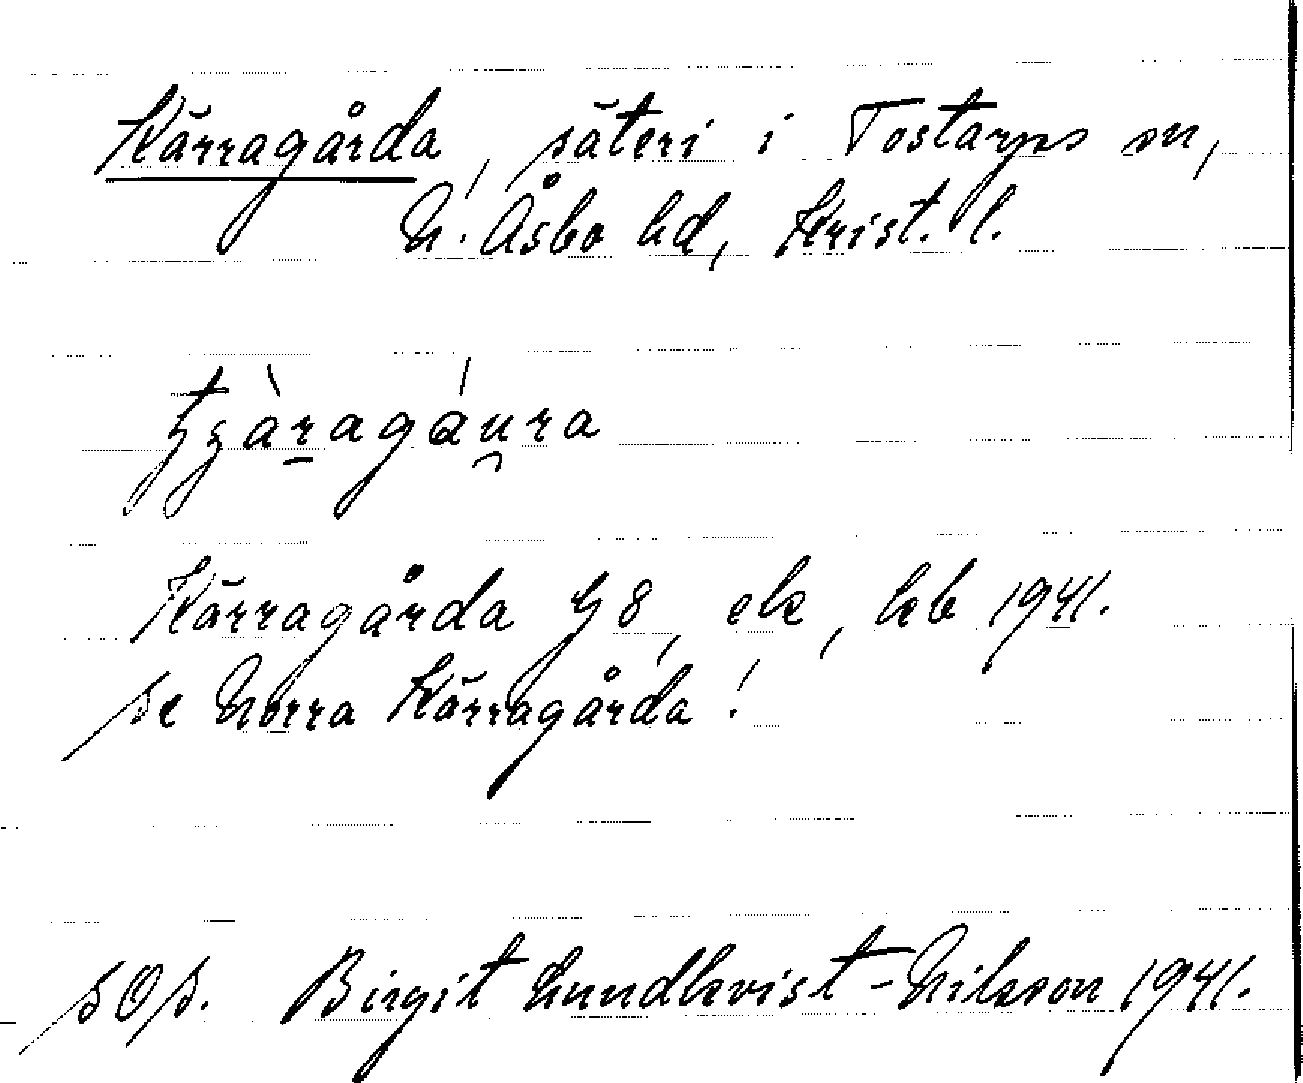 Kärragårda, säteri i Tostarps sn,
N. Åsbo hd, Krist. l.
Kärragårda G 8, ek, kb 1941.
Se Norra Kärragårda!
SOS. Birgit Lundkvist-Nilsson 1941.